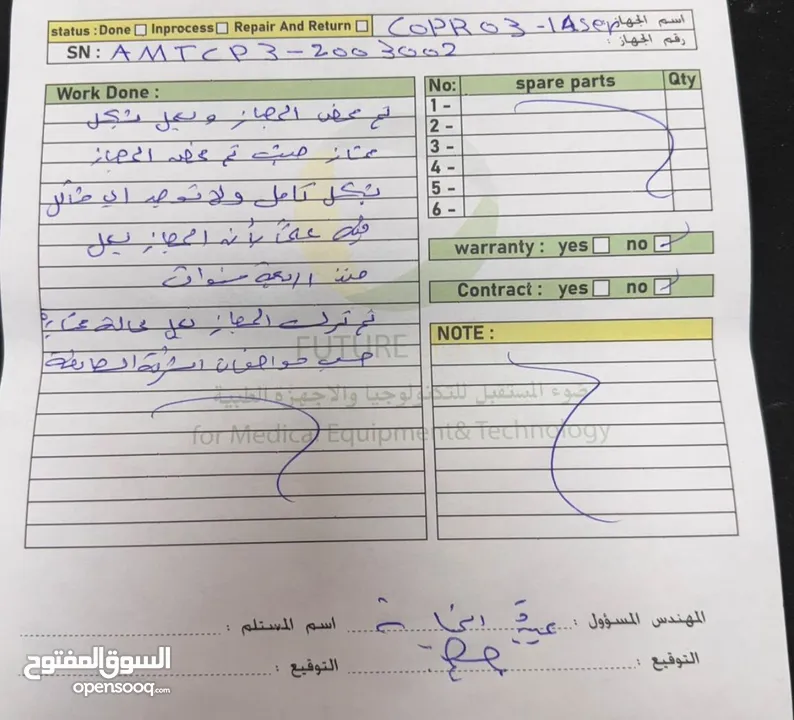 status : Done Inprocess Repair And Return
COPRO3 - LASer اسم الجهاز :
SN : AMTCP3-2003002 رقم الجهاز :
Work Done :
تم فحص الجهاز ويعمل بشكل
ممتاز حيث تم فحص الجهاز
بشكل كامل ولا توجد اي مشاكل
فيه علماً بأنه الجهاز يعمل
منذ اربعة سنوات
تم ترك الجهاز يعمل بحالة ممتازة
حسب مواصفات الشركة الصانعة
No: spare parts Qty
1 -
2 -
3 -
4 -
5 -
6 -
warranty : yes no
Contract : yes no
NOTE :
FUTURE
ضوء المستقبل للتكنولوجيا والاجهزة الطبية
for Medical Equipment & Technology
المهندس المسؤول :
اسم المستلم :
التوقيع :
التوقيع :
السوق المفتوح
opensooq.com